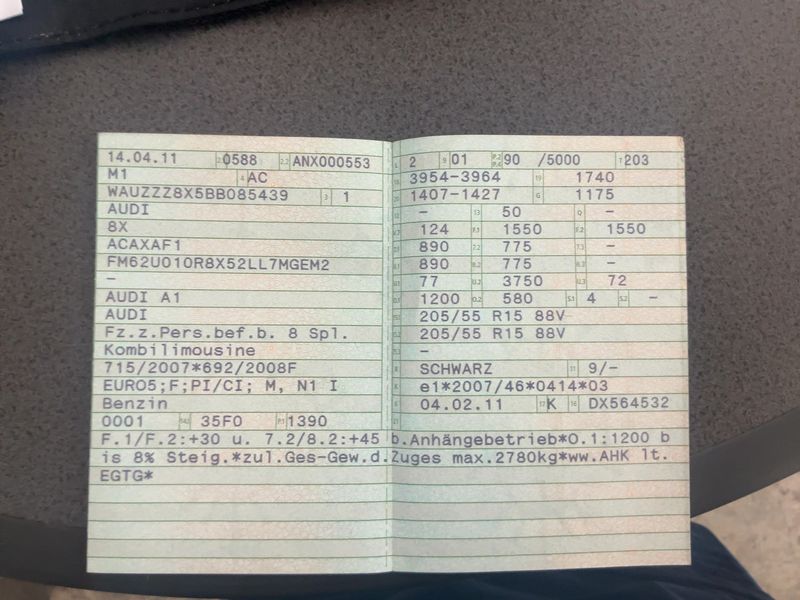 14.04.11 0588 ANX000553
M1 AC
WAUZZZ8X5BB085439 1
AUDI
8X
ACAXAF1
FM62U010R8X52LL7MGEM2
–
AUDI A1
AUDI
Fz.z.Pers.bef.b. 8 Spl.
Kombilimousine
715/2007*692/2008F
EURO5;F;PI/CI; M, N1 I
Benzin
0001 35F0 1390
2 01 90 /5000 203
3954-3964 1740
1407-1427 1175
– 50 –
124 1550 1550
890 775 –
890 775 –
77 3750 72
1200 580 4 –
205/55 R15 88V
205/55 R15 88V
–
SCHWARZ 9/–
e1*2007/46*0414*03
04.02.11 K DX564532
F.1/F.2:+30 u. 7.2/8.2:+45 b.Anhängebetrieb*O.1:1200 b
is 8% Steig.*zul.Ges-Gew.d.Zuges max.2780kg*ww.AHK lt.
EGTG*